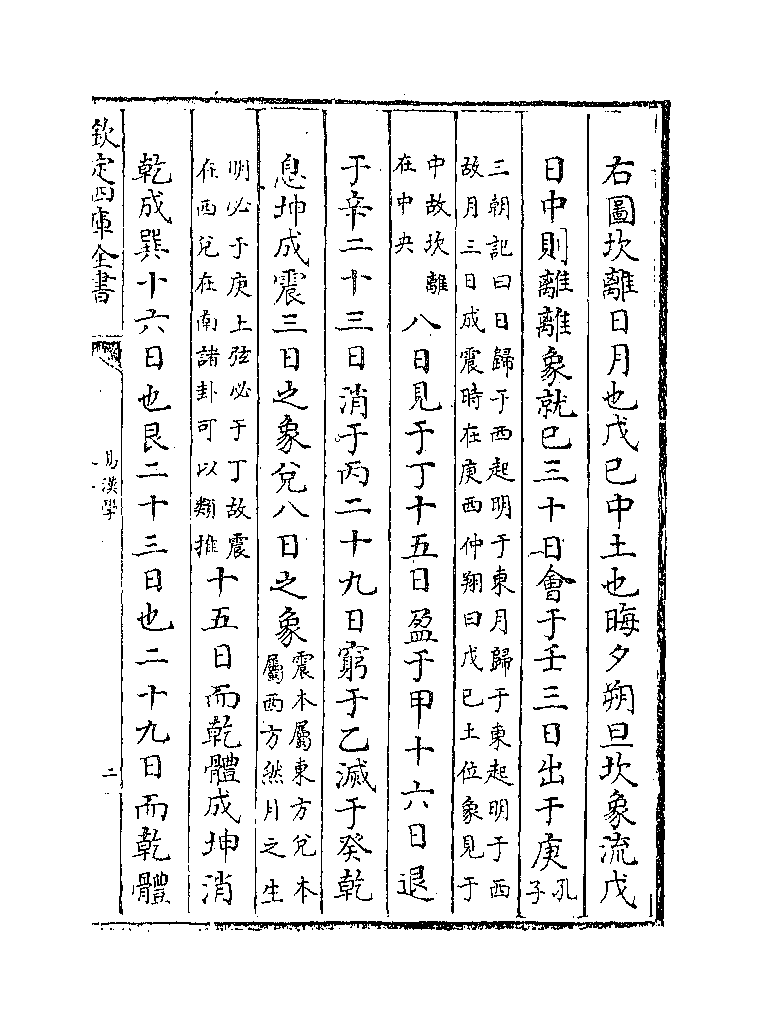 右圖坎離日月也戊已中土也晦夕朔旦坎象流戊
日中則離離象就已三十日會于壬三日出于庚孔
子
三朝記曰日歸于西起明于東月歸于東起明于西
故月三日成震時在庚西仲翔曰戊已土位象見于
中故坎離
在中央
八日見于丁十五日盈于甲十六日退
于辛二十三日消于丙二十九日窮于乙滅于癸乾
息坤成震三日之象兌八日之象
震木屬東方兌本
屬西方然月之生
明必于庚上弦必于丁故震
在西兌在南諸卦可以類推
十五日而乾體成坤消
乾成巽十六日也艮二十三日也二十九日而乾體
欽定四庫全書
易漢學
二